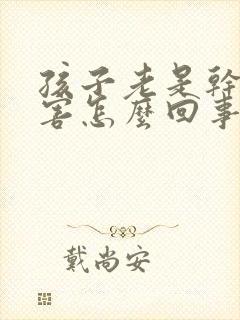 孩子老是幹
害怎麼回事
戴尚安